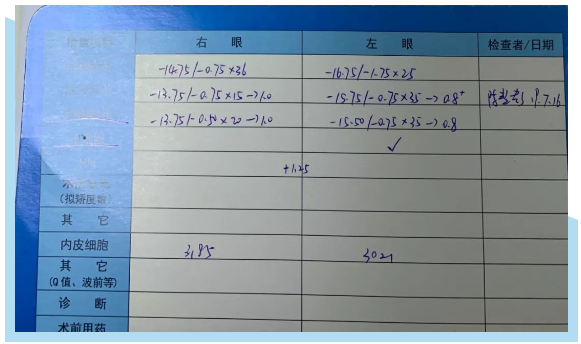 右 眼 左 眼 检查者/日期
-14.75/-0.75×36 -16.75/-1.75×25
-13.75/-0.75×15→1.0 -15.75/-0.75×35→0.8⁺
-13.75/-0.50×20→1.0 -15.50/-0.75×35→0.8
✓
+1.25
(拟矫正数)
其 它
内皮细胞 3195 3021
其 它
(Q值、波前等)
诊 断
术前用药